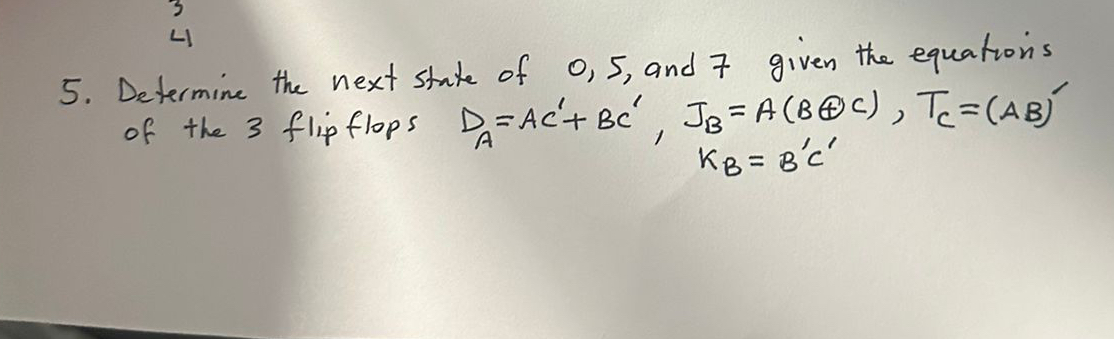 3
4
5. Determine the next state of 0, 5, and 7 given the equations
of the 3 flip flops D_A = AC' + BC', J_B = A(B⊕C), T_C = (AB)'
K_B = B'C'